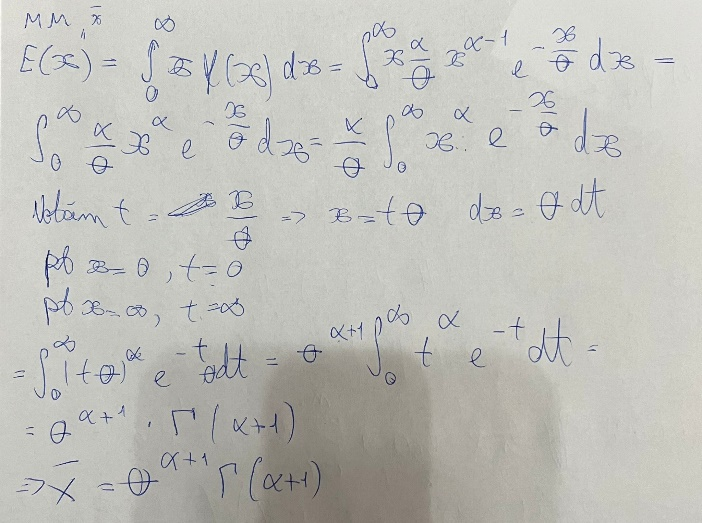 MM, x̄
E(x) = ∫₀^∞ x f(x) dx = ∫₀^∞ x α/θ x^(α-1) e^(-x/θ) dx =
∫₀^∞ α/θ x^α e^(-x/θ) dx = α/θ ∫₀^∞ x^α e^(-x/θ) dx
Notăm t = x/θ => x = tθ dx = θ dt
pt x = 0, t = 0
pt x = ∞, t = ∞
= ∫₀^∞ (tθ)^α e^(-t) θdt = θ^(α+1) ∫₀^∞ t^α e^(-t) dt =
= θ^(α+1) · Γ(α+1)
=> X̄ = θ^(α+1) Γ(α+1)